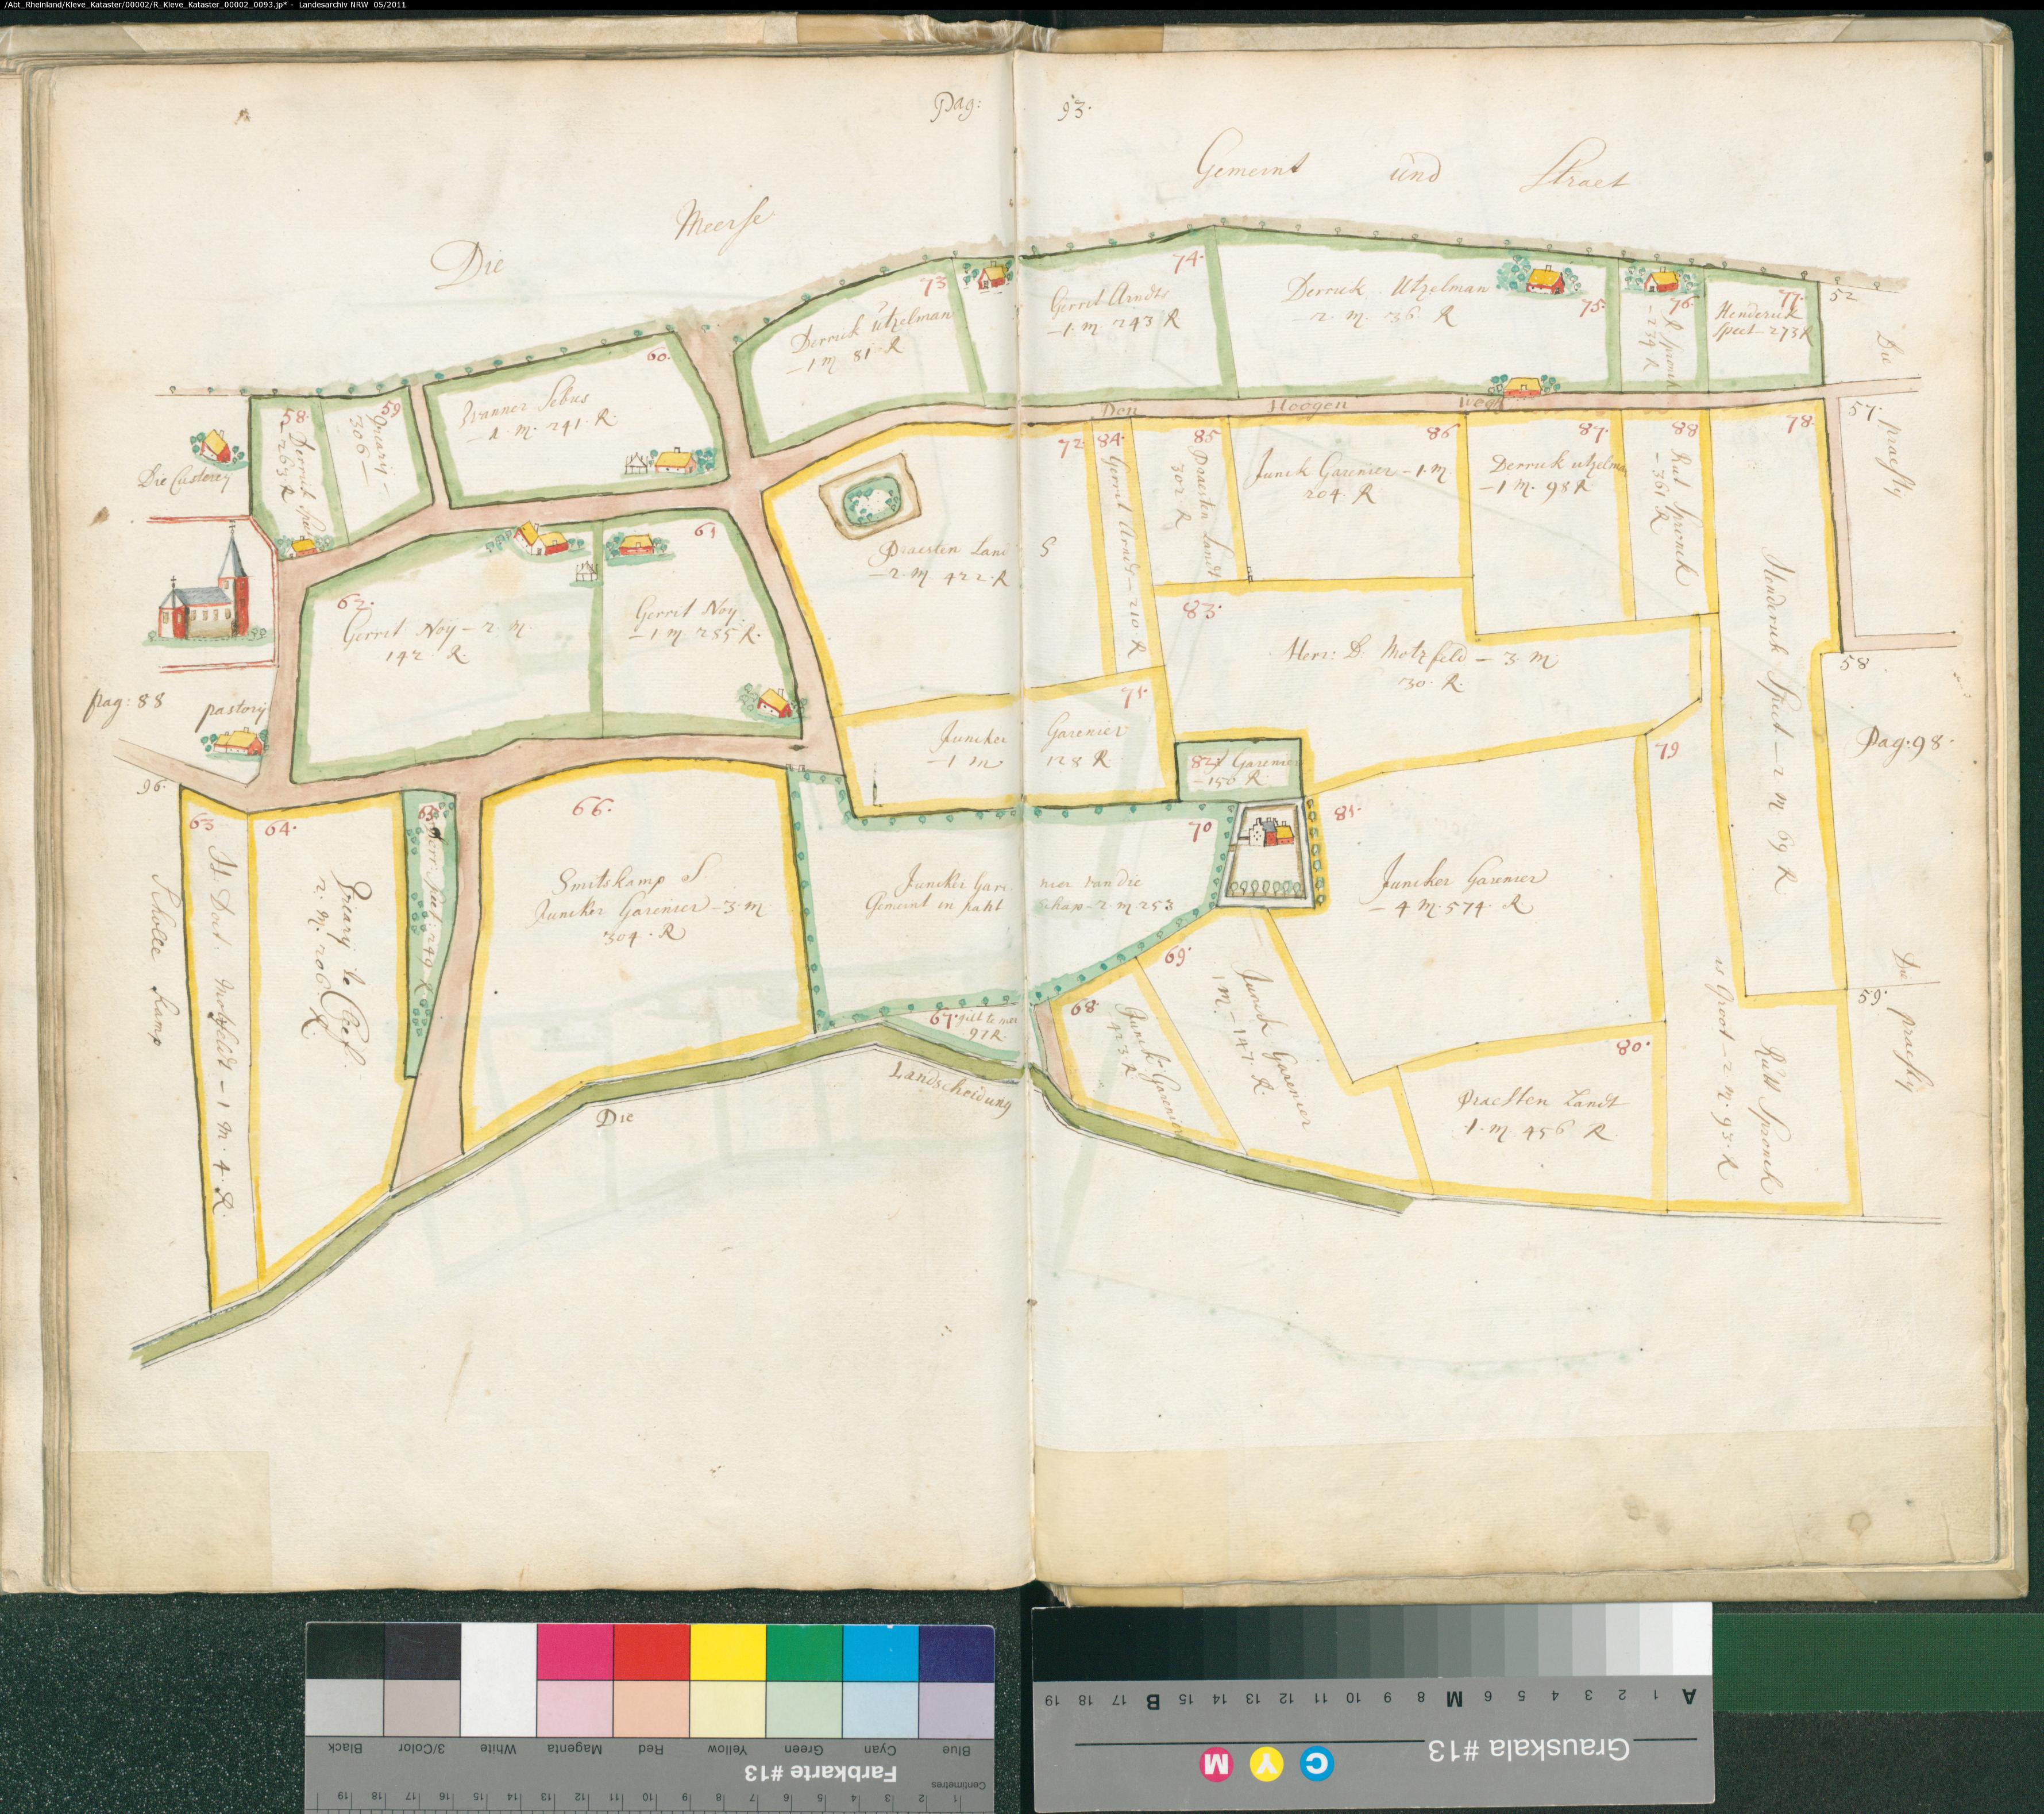 /Abt_Rheinland/Kleve_Kataster/00002/R_Kleve_Kataster_00002_0093.jp* - Landesarchiv NRW 05/2011
Pag: 93.
Gemeint und Straet
Die Meerse
73
Derrick Utzelman
-1 m 81 R
74.
Gerrit Arndts
-1. m. 243 R
Derrick Utzelman
-2. m. 36. R
75.
76.
R Spronck
-239 R
77.
Henderick
Speet-273 R
52
Die praesty
57.
58
Pag. 98.
59.
Die praesty
Die Custerey
58.
Derrick
-263 R
59
306
60.
Wanner Sebus
-1. m. 241. R
Den Hoogen Wegh
61
Gerrit Noy
-1 m 285 R.
62.
Gerrit Noy-2. m.
142 R.
pag: 88
pastorij
96.
Scholte Kamp
63
-1 m. 4. R.
64.
2. m. 206 R
65
66.
Smitskamp S.
Juncker Garenier-3. m
304. R
67.
97 R.
68
Junck Garenier
423 R
69.
Junck Garenier
1 m-147. R.
70
Juncker Garenier van die
Gemeint in paht schap-2. m 253
71.
Juncker Garenier
-1 m 128 R
72.
Praesten Land S
-2. m. 422. R
84.
Gerrit Arndt-210 R
85
Praesten Landt
302 R
86
Junck Garenier-1. m.
204. R
87.
Derrick Utzelman
-1. m. 98 R
88
Rut Spronck
-361 R
78.
Henderick Speet-2 m 69 R
83.
Herr: D. Motzfeld-3. m
30. R.
82
J Garenier
-150 R.
81.
Juncker Garenier
-4 m. 574. R
79
Groot-2 m. 93. R
Rutt Spronck
80.
Praesten Landt
1. m. 456 R
Die Landscheidung
Farbkarte #13
Centimetres
Blue
Cyan
Green
Yellow
Magenta
Red
White
3/Color
Black
1 2 3 4 5 6 7 8 9 10 11 12 13 14 15 16 17 18 19
Grauskala #13
C Y M
A 1 2 3 4 5 6 M 8 9 10 11 12 13 14 15 B 17 18 19